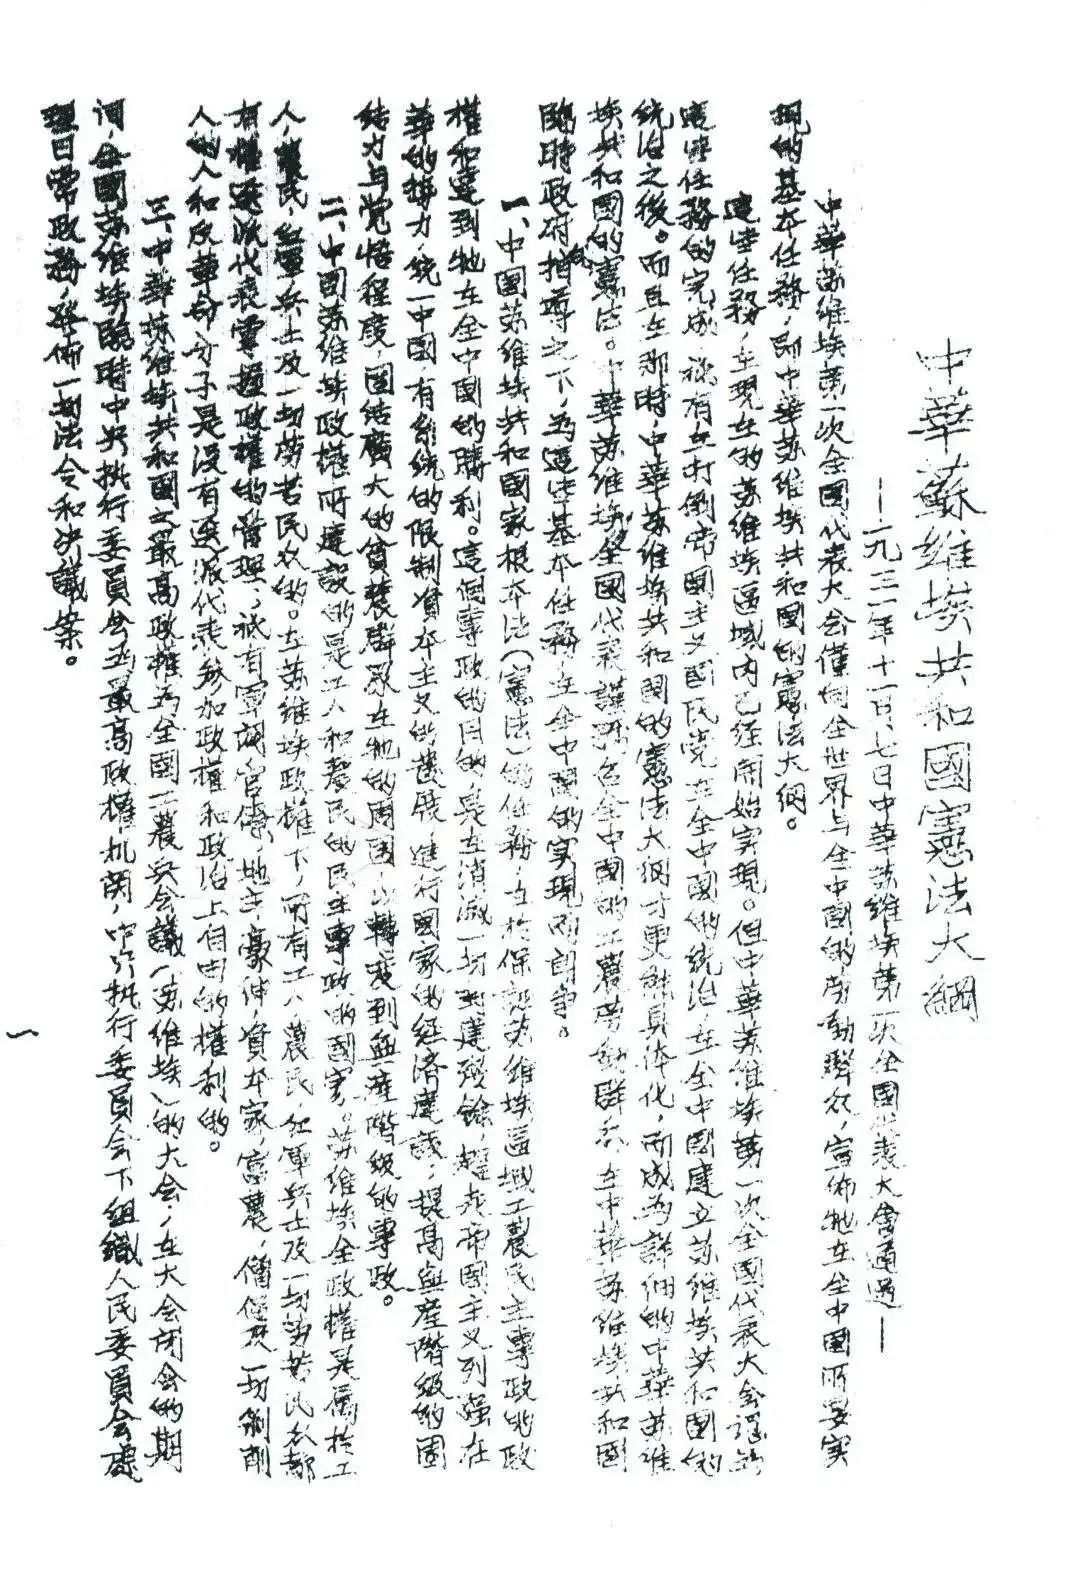 中華蘇維埃共和國憲法大綱
—一九三一年十一月七日中華苏維埃第一次全國代表大會通過—
中華苏維埃第一次全國代表大会僅向全世界与全中國的劳動羣众，宣佈牠在全中國所要实
現的基本任務，即中華苏維埃共和國的憲法大綱。
這些任務，在現在的苏維埃區域内已经開始实現。但中華苏維埃第一次全國代表大会認為
這些任務的完成，祇有在打倒帝國主义國民党在全中國的統治，在全中國建立苏維埃共和國的
統治之後。而且在那時，中華苏維埃共和國的憲法大綱才更能具体化，而成為詳细的中華苏維
埃共和國的憲法。中華苏維埃全國代表謹號召全中國的工農劳動群众，在中華苏維埃共和國
臨時政府指導之下，為這些基本任務在全中國的实現而鬥争。
一、中國苏維埃共和國家根本法（憲法）的任務，在於保証苏維埃區域工農民主專政的政
權和達到牠在全中國的勝利。這個專政的目的，是在消滅一切封建殘餘，趕走帝國主义列强在
華的势力，統一中國，有系統的限制資本主义的發展，進行國家的经济建設，提高無產階級的團
结力与觉悟程度，團结廣大的貧農群众在牠的周圍，以轉变到無產階級的專政。
二、中國苏維埃政權所建設的是工人和農民的民主專政的國家。苏維埃全政權是屬於工
人，農民，红軍兵士及一切劳苦民众的。在苏維埃政權下，所有工人，農民，红軍兵士及一切劳苦民众都
有權選派代表掌握政權的管理，祇有軍閥，官僚，地主，豪绅，資本家，富農，僧侣及一切剝削
人的人和反革命分子是没有選派代表参加政權和政治上自由的權利的。
三、中華苏維埃共和國之最高政權為全國工農兵会議（苏維埃）的大会，在大会闭会的期
间，全國苏維埃臨時中央执行委員会為最高政權机関，中央执行委員会下組織人民委員会處
理日常政務，發佈一切法令和决議案。
一